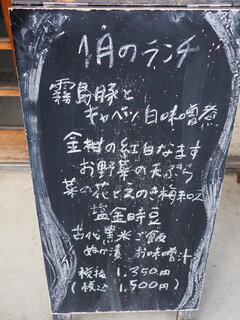 1月のランチ
霧島豚と
キャベツ白味噌煮
金柑の紅白なます
お野菜の天ぷら
菜の花とえのき梅和え
塩金時豆
古代黒米ご飯
ぬか漬 お味噌汁
税抜 1,350円
(税込 1,500円)